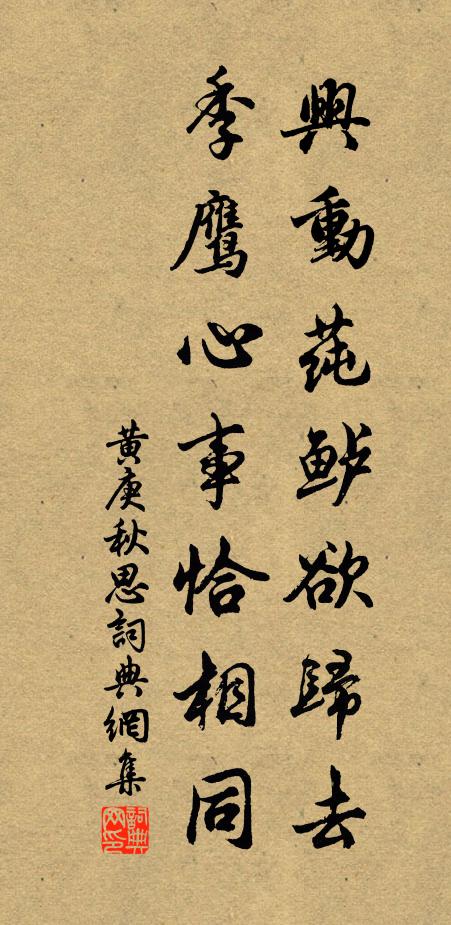 興動莼鲈欲歸去
季鹰心事恰相同
黄庚秋思詞典網集
詞典网印